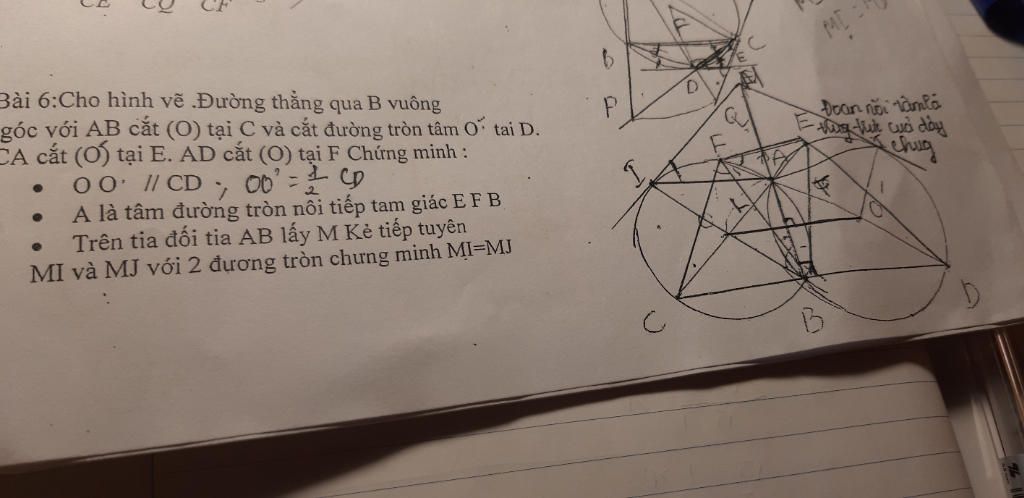 CE CQ CF
Bài 6:Cho hình vẽ .Đường thẳng qua B vuông
góc với AB cắt (O) tại C và cắt đường tròn tâm O' tai D.
CA cắt (O') tại E. AD cắt (O) tại F Chứng minh :
• O O' // CD ; OO' = 1/2 CD
• A là tâm đường tròn nôi tiếp tam giác E F B
• Trên tia đối tia AB lấy M Kẻ tiếp tuyên
MI và MJ với 2 đương tròn chưng minh MI=MJ
B
C
E
D
P
Q
Đoạn nối tâm là
trung trực của dây
chung
F
E
I
A
O
C
B
D